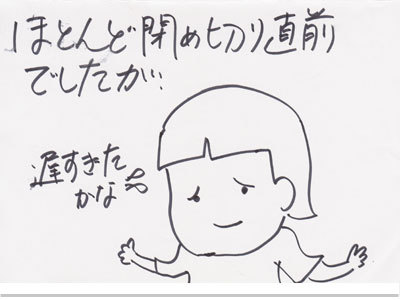 ほとんど閉め切り直前
でしたが、
遅すぎた
かな